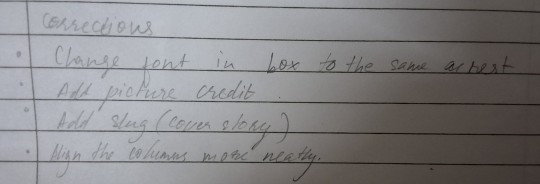 Corrections
• Change font in box to the same as rest
• Add picture credit.
• Add slug (cover story)
• Align the columns more neatly.